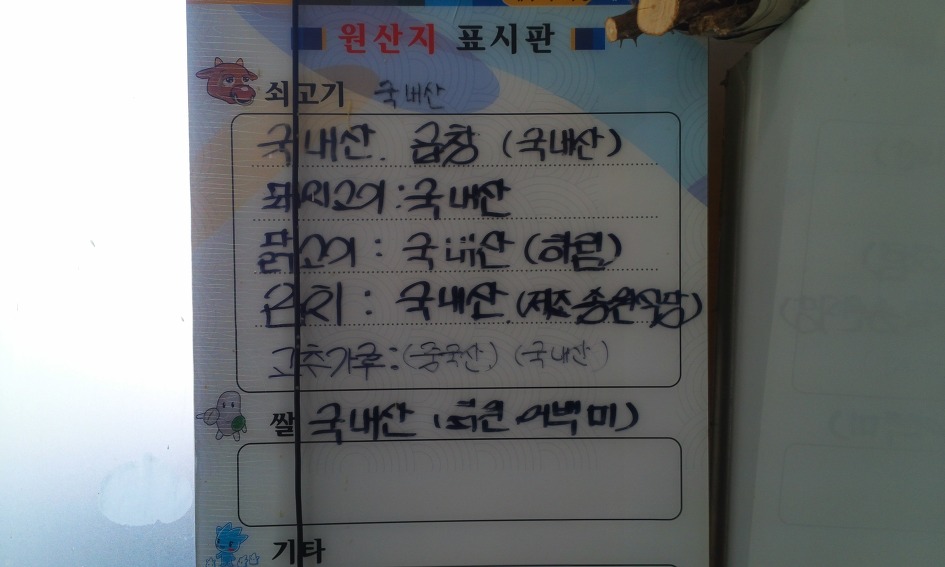 원산지 표시판
쇠고기 국내산
국내산. 곱창 (국내산)
돼지고기 : 국내산
닭고기 : 국내산 (하림)
김치 : 국내산 (제조
고추가루 : (중국산) (국내산)
쌀 국내산
기타